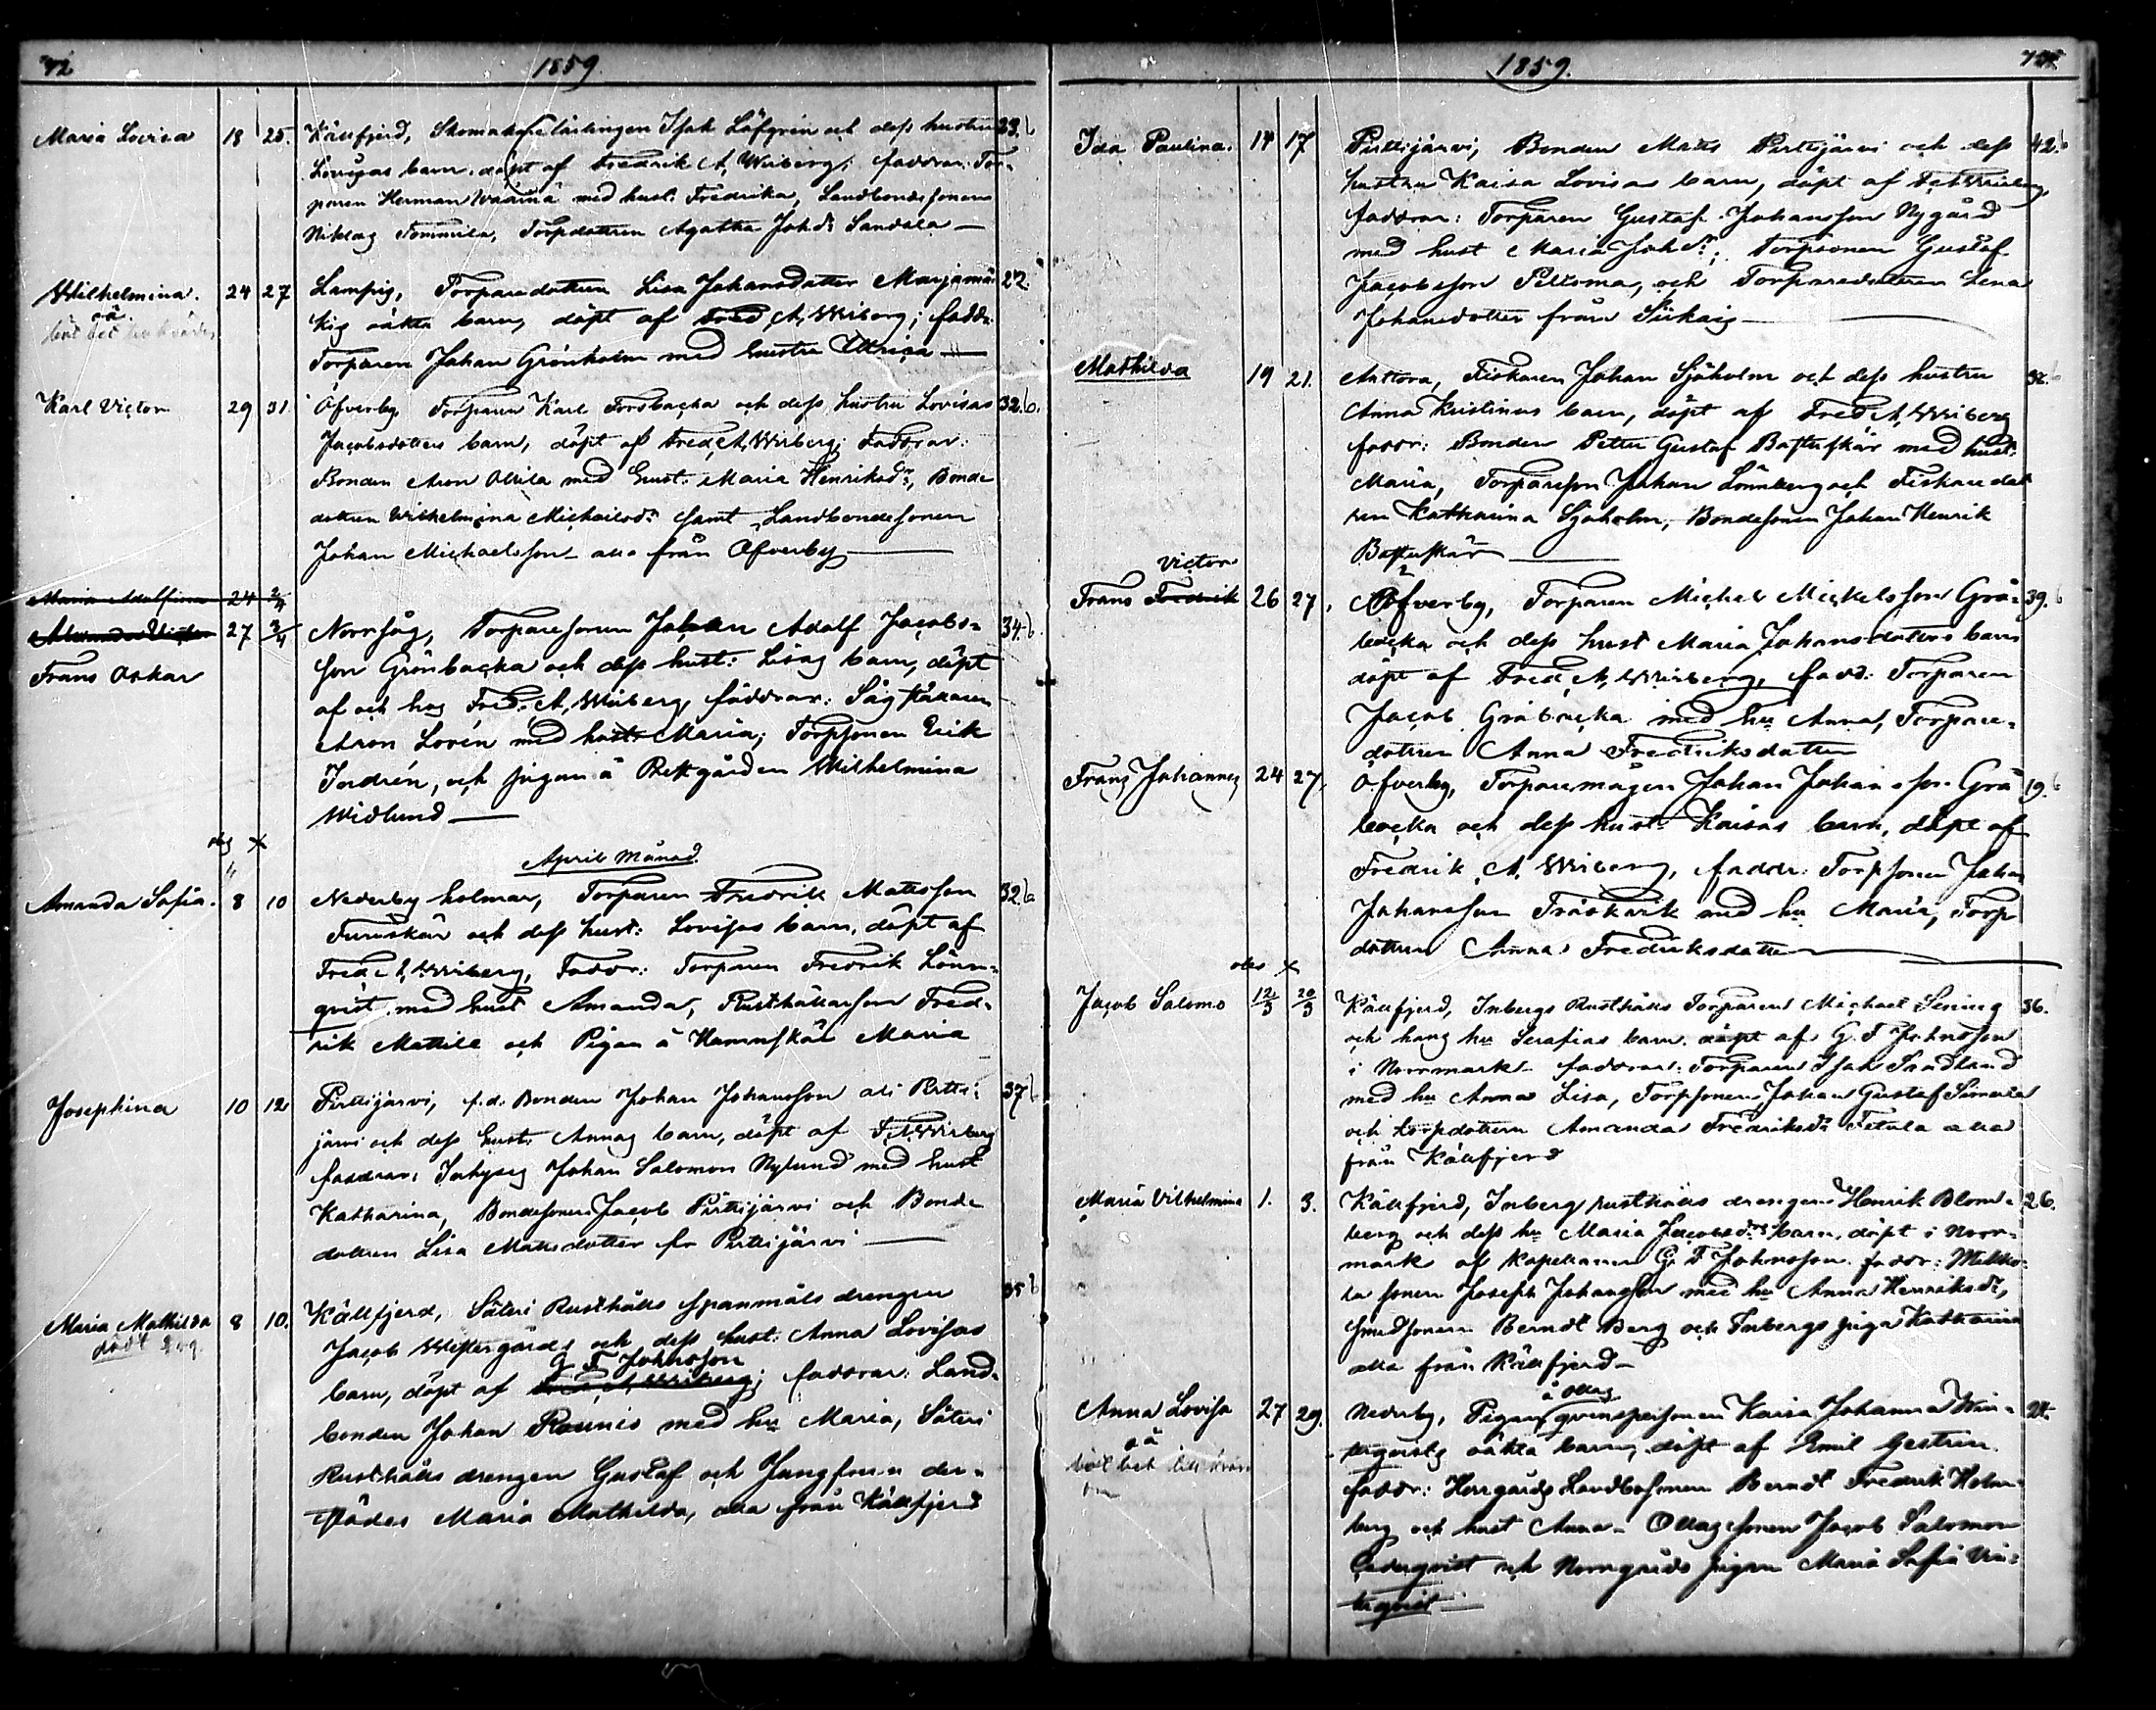 72 1859
Maria Lovisa 18 25. Källfjerd, Skomakare lärlingen Isak Löfgrén och dess hustru 23. b
Lovisas barn, döpt af Fredrik A, Wiberg; faddrar: Tor-
paren Herman med hust: Fredrika, Landbondesonen
Niklas Tommila, Torpdottren Agatha Johd: Sandala —
Wilhelmina. 24 27 Lampis, Torparedottren Lisa Johansdotter Marjamä- 22.
oä.
kis oäkta barn, döpt af Fred. A, Wiberg; faddr:
Torparen Johan Grönholm med hustru Ulrica —
Karl Victor 29 31 Öfverby Torparen Karl Forsbacka och dess hustru Lovisas 32. b.
Jacobsdotters barn, döpt af Fred. A, Wiberg; Faddrar:
Bonden Aron Ollila med hust: Maria Henriksdr, Bonde
dottren Wilhelmina Michaelsdr samt Landbondesonen
Johan Michaelsson alla från Öfverby —
Maria Adolfina 24 2/4
Alexander Victor 27 3/4 Norrsåg, Torparesonen Johan Adolf Jacobs- 34. b
Frans Oskar
son Grönbacka och dess hust: Lisas barn, döpt
af och hos Fred. A, Wiberg, faddrar: Sågställaren
Aron Lovén med hustr Maria; Torpsonen Erik
Indrén, och pigan å Prestgården Wilhelmina
Widlund —
obs x
April Månad.
Amanda Sofia. 8 10 Nederby holmar, Torparen Fredrik Matsson 32 b
Furuskär och dess hust: Lovisas barn, döpt af
Fred. A, Wiberg, Faddr: Torparen Fredrik Lönn-
qvist med hust Amanda, Rusthållarson Fred-
rik Mattila och Pigan å Hamnskär Maria
Josephina 10 12 Pirttijärvi, f.d. Bonden Johan Johansson ali Pirtti- 37 b
järvi och dess hust: Annas barn, döpt af F. A. Wiberg
faddrar: Inhyses Johan Salomon Nylund med hust
Katharina, Bondesonen Jacob Pirttijärvi och Bonde
dottren Lisa Matsdotter fr Pirttijärvi —
Maria Mathilda 8 10. Källfjerd, Säteri Rusthålls spanmåls drengen 35 b
död
Jacob Westergårds och dess hust: Anna Lovisas
G F Johnsson
barn, döpt af Fred, A, Wiberg; faddrar: Land-
bonden Johan Raunio med hu Maria, Säteri
Rusthålls drengen Gustaf och Jungfrun der-
städes Maria Mathilda, alla från Källfjerd
1859.
Ida Paulina. 14 17 Pirttijärvi, Bonden Mats Pirttijärvi och dess 42. b
hustru Kaisa Lovisas barn, döpt af F. A. Wiberg
faddrar: Torparen Gustaf Johansson Nygård
med hust Maria Johdr; torpsonen Gustaf
Jacobsson Peltoma, och Torparedottren Lena
Johansdotter från Siikais —
Mathilda 19 21. Anttora, Fiskaren Johan Sjöholm och dess hustru 32. b
Anna Kristinas barn, döpt af Fred A, Wiberg
faddr: Bonden Petter Gustaf Bastuskär med hust:
Maria, Torpareson Johan Lönnberg och Fiskaredot
tren Katharina Sjöholm, Bondesonen Johan Henrik
Bastuskär —
Victor
Frans Fredrik 26 27. Öfverby, Torparen Michel Mickelsson Grå- 39. b
backa och dess hust Maria Johansdotters barn
döpt af Fred, A, Wiberg, fadd: Torparen
Jacob Gråbacka med hu Anna, Torpare-
dottren Anna Fredriksdotter
Frans Johannes 24 27. Öfverby, Torparemågen Johan Johansson Grå 19. b
backa och dess hust: Kaisas barn, döpt af
Fredrik, A, Wiberg, faddr: Torpsonen Johan
Johansson Träskvik med hu Maria, Torp
dottren Anna Fredriksdotter —
obs x
Jacob Salomo 12/3 20/3 Källfjerd, Inbergs Rusthålls Torparen Michael Sening 36.
och hans hu Serafias barn döpt af G. F Johnsson
i Norrmark faddrar: Torparen Isak Sandland
med hu Anna Lisa, Torpsonen Johan Gustaf Simula
och torpdottren Amanda Fredriksdr Fetula alla
från Källfjerd
Maria Vilhelmina 1. 3. Källfjerd, Inberg rusthålls drengen Henrik Blom- 26.
berg och dess hu Maria Jacobsdrs barn, döpt i Norr-
mark af Kapellanen G. F Johnsson faddr:
sonen Joseph Johansson med hu Anna Henriksdr,
Smedsonen Berndt Berg och Inbergs piga Katharina
alla från Källfjerd —
å Ollas
Anna Lovisa 27 29. Nederby, Pigan, qvinspersonen Kaisa Johanna Win- 24.
oä
terqvists oäkta barn, döpt af Emil Gestrin
faddr: Herrgårds Landbosonen Berndt Fredrik Holm-
berg och hust Anna — Ollas sonen Jacob Salomon
Cederqvist och Norrgårds pigan Maria Sofia Vin-
terqvist —